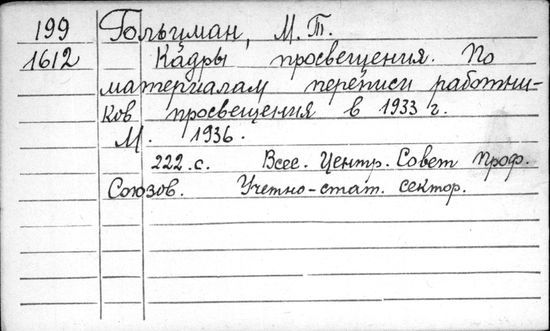 199 Гольцман, М. Т.
1612 Кадры просвещения. По
материалам переписи работни-
ков просвещения в 1933 г.
М. 1936.
222.с. Всес. Центр. Совет Проф.
Союзов. Учетно-стат. сектор.